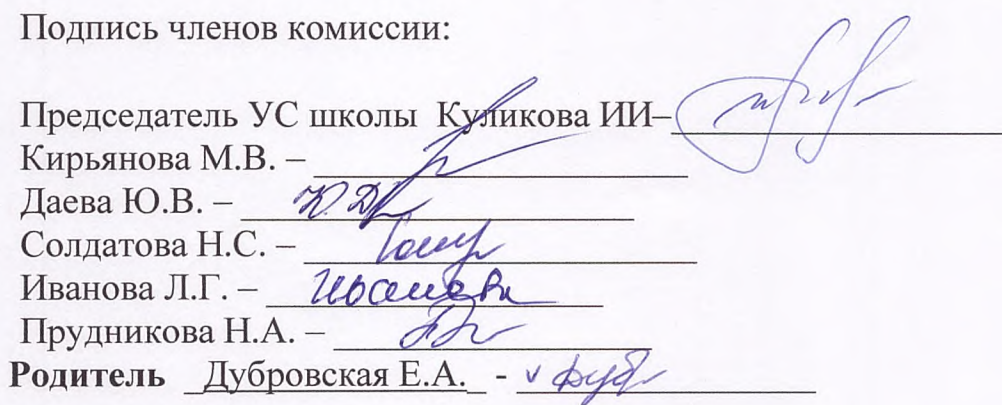 Подпись членов комиссии:
Председатель УС школы Куликова ИИ–
Кирьянова М.В. –
Даева Ю.В. –
Солдатова Н.С. –
Иванова Л.Г. – Иванова
Прудникова Н.А. –
Родитель Дубровская Е.А. - v Дубр